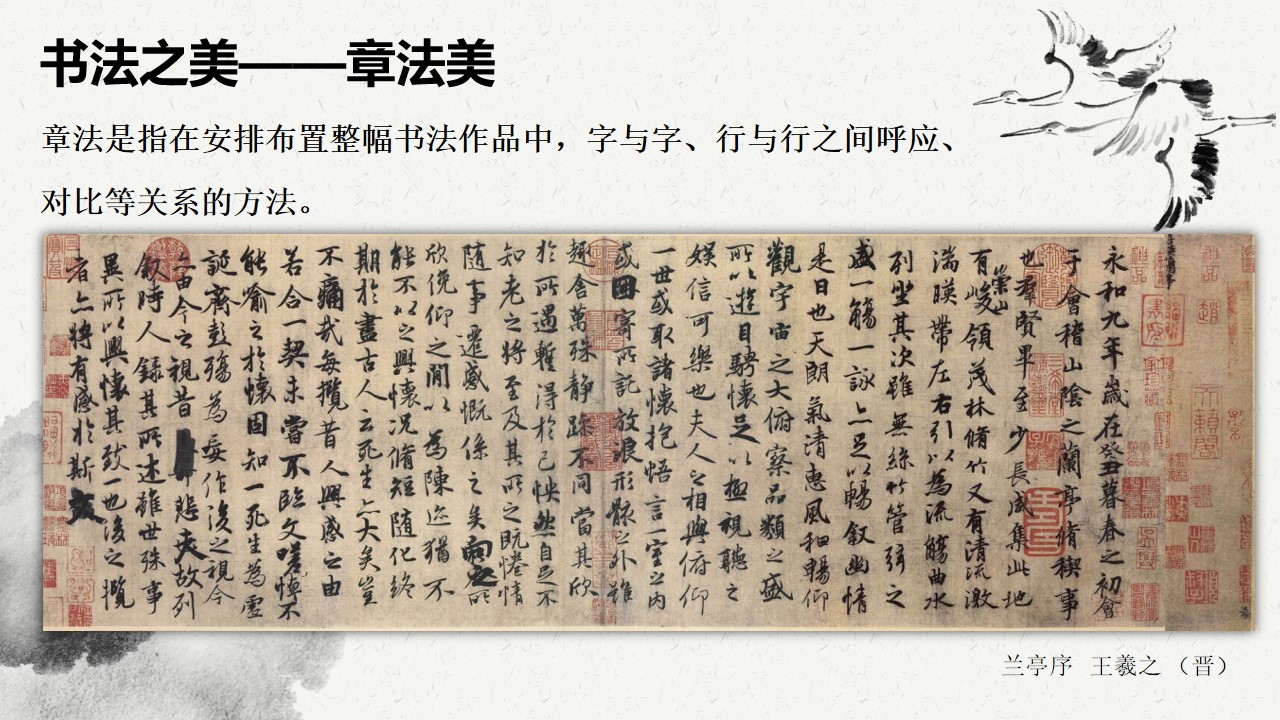 书法之美——章法美
章法是指在安排布置整幅书法作品中，字与字、行与行之间呼应、
对比等关系的方法。
永和九年歲在癸丑暮春之初會
于會稽山陰之蘭亭脩稧事
也羣賢畢至少長咸集此地
有崇山峻領茂林脩竹又有清流激
湍暎帶左右引以為流觴曲水
列坐其次雖無絲竹管弦之
盛一觴一詠亦足以暢叙幽情
是日也天朗氣清惠風和暢仰
觀宇宙之大俯察品類之盛
所以遊目騁懷足以極視聽之
娛信可樂也夫人之相與俯仰
一世或取諸懷抱悟言一室之內
或因寄所託放浪形骸之外雖
趣舍萬殊静躁不同當其欣
於所遇暫得於己怏然自足不
知老之將至及其所之既惓情
隨事遷感慨係之矣向之所
欣俛仰之閒以為陳迹猶不
能不以之興懷況脩短隨化終
期於盡古人云死生亦大矣豈
不痛哉每攬昔人興感之由
若合一契未嘗不臨文嗟悼不
能喻之於懷固知一死生為虛
誕齊彭殤為妄作後之視今
亦由今之視昔悲夫故列
叙時人錄其所述雖世殊事
異所以興懷其致一也後之攬
者亦將有感於斯文
兰亭序 王羲之（晋）